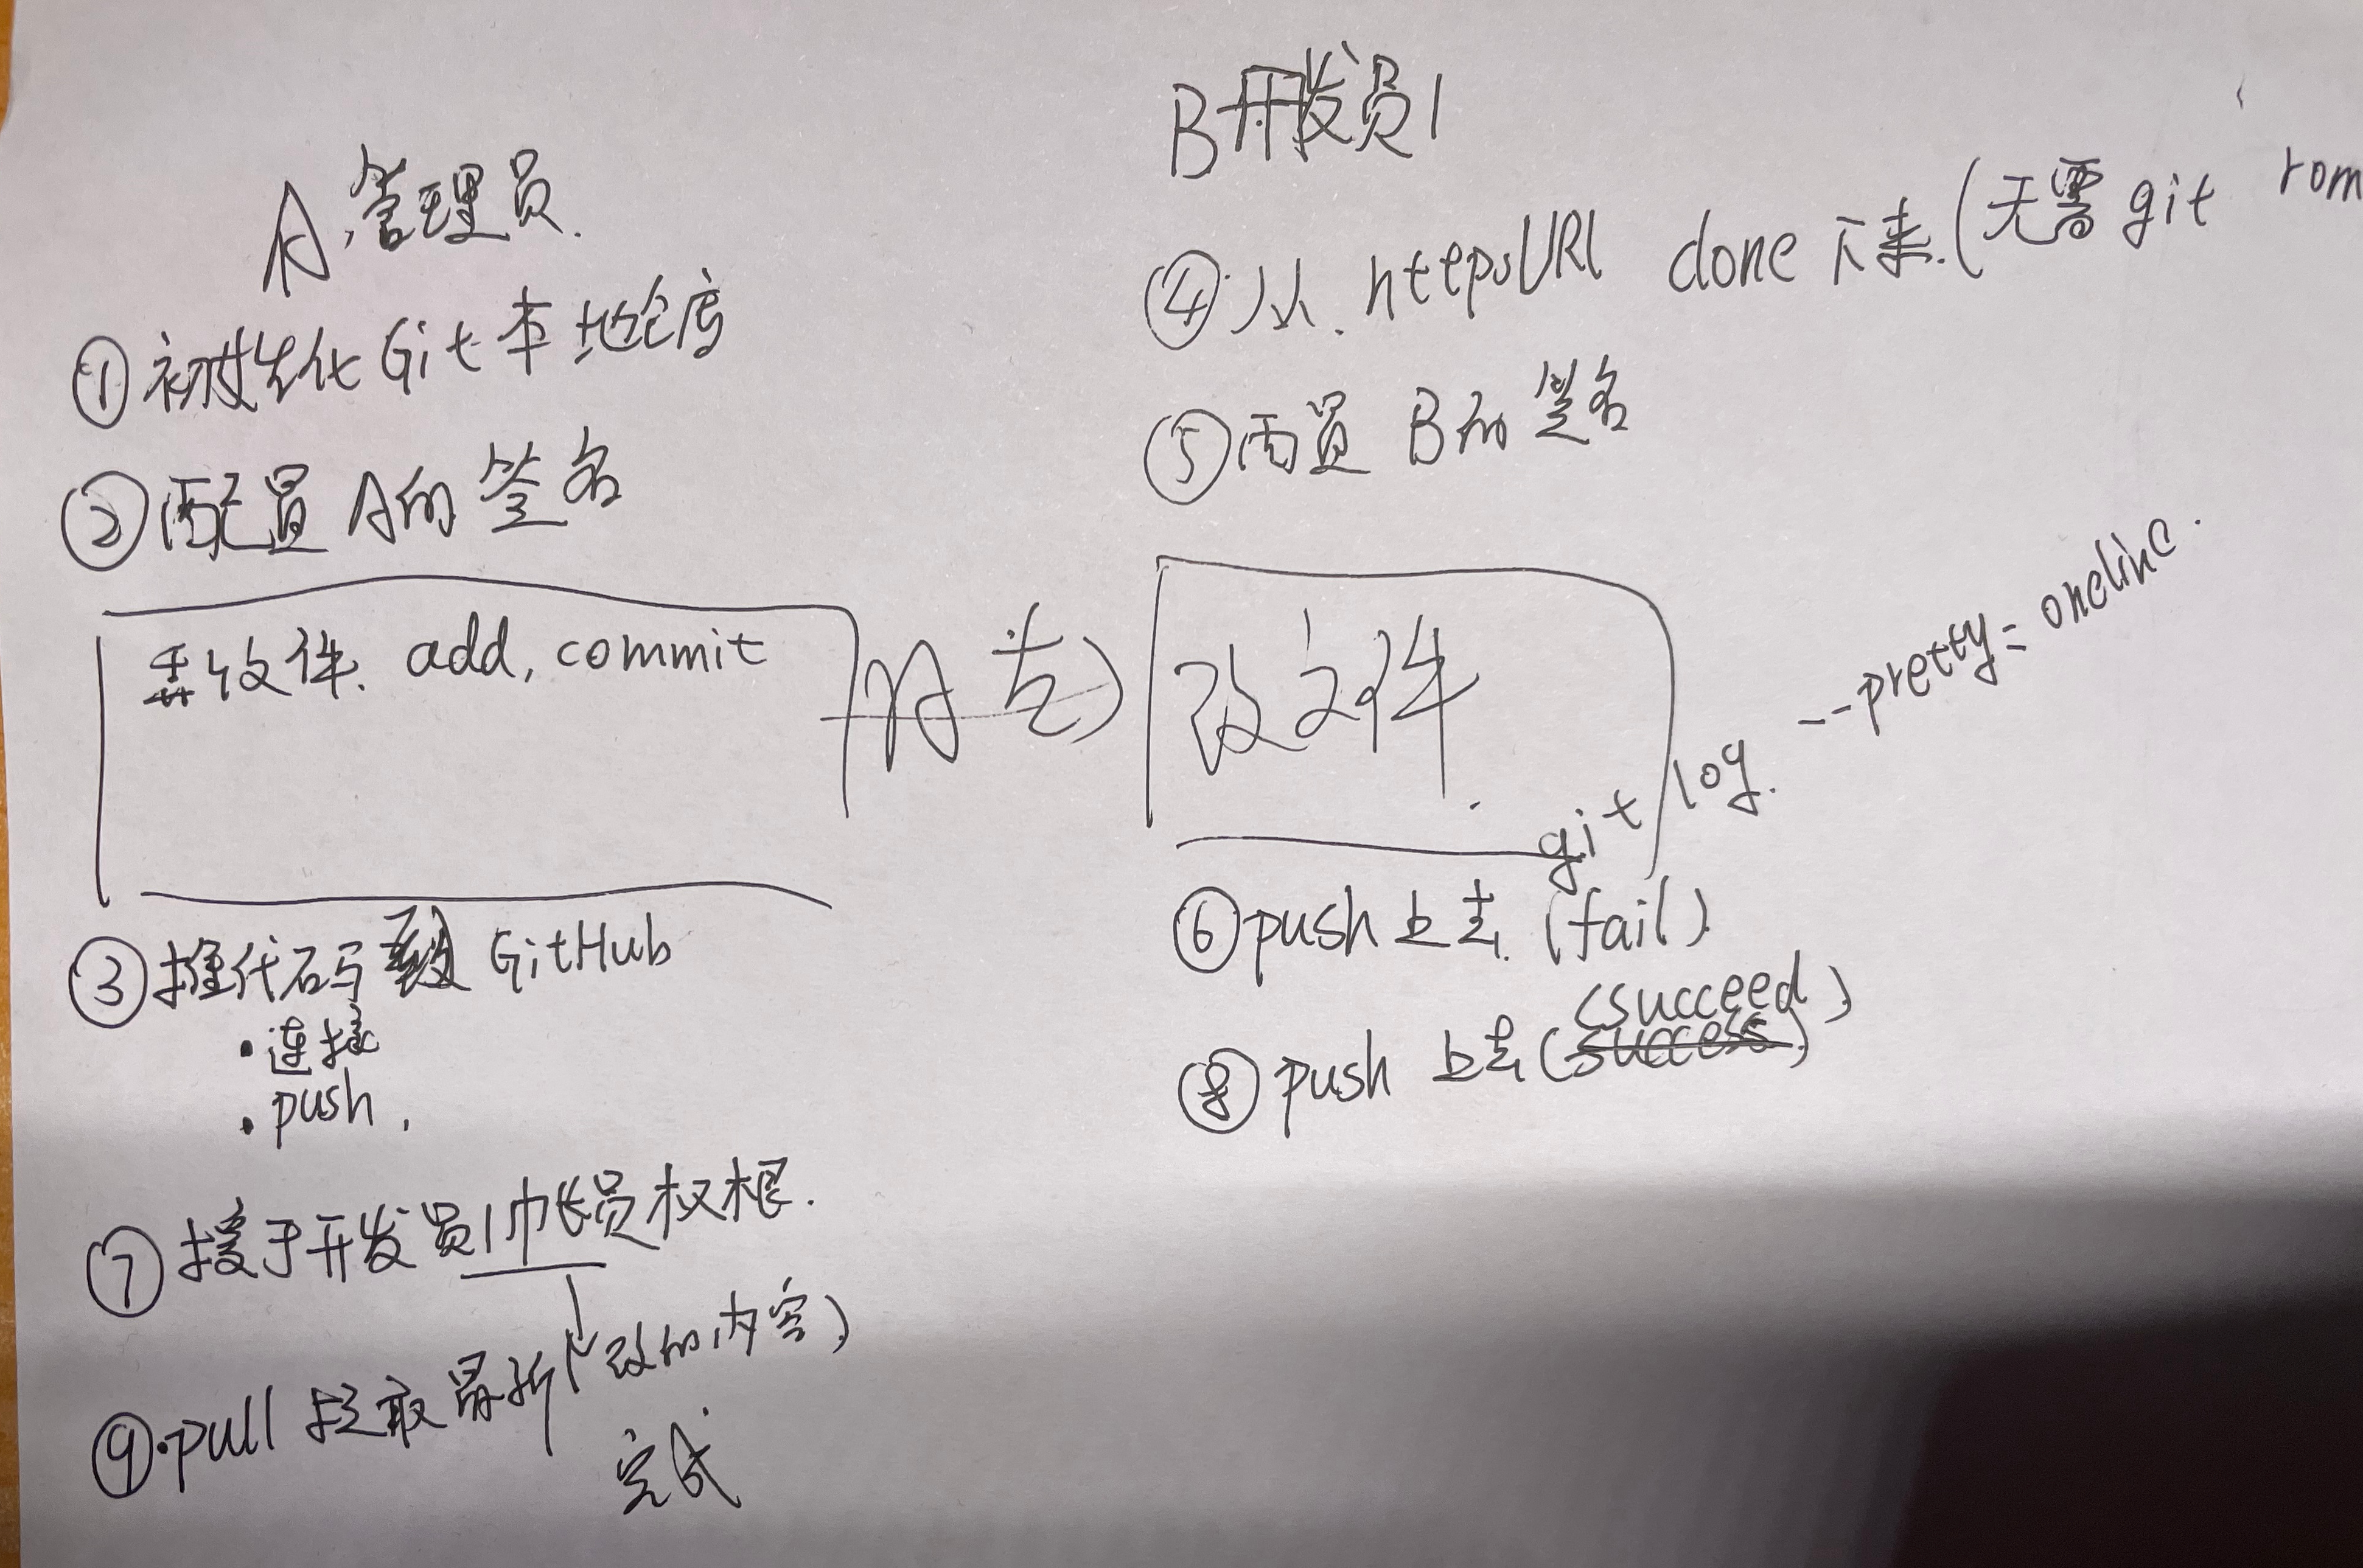 A 管理员.
① 初始化 Git 本地仓库
② 配置 A的 签名
文件. add, commit
③ 推代码到 GitHub
• 连接
• push.
⑦ 授予开发员1 权根.
⑨ • pull 拉取最新(改的内容)
完成
B 开发员1
④ 从. httpsURL clone 下来. (无需 git rom
⑤ 配置 B的 签名
改文件.
git log. --pretty=oneline.
⑥ push 上去. (fail)
(succeed)
⑧ push 上去 (success)